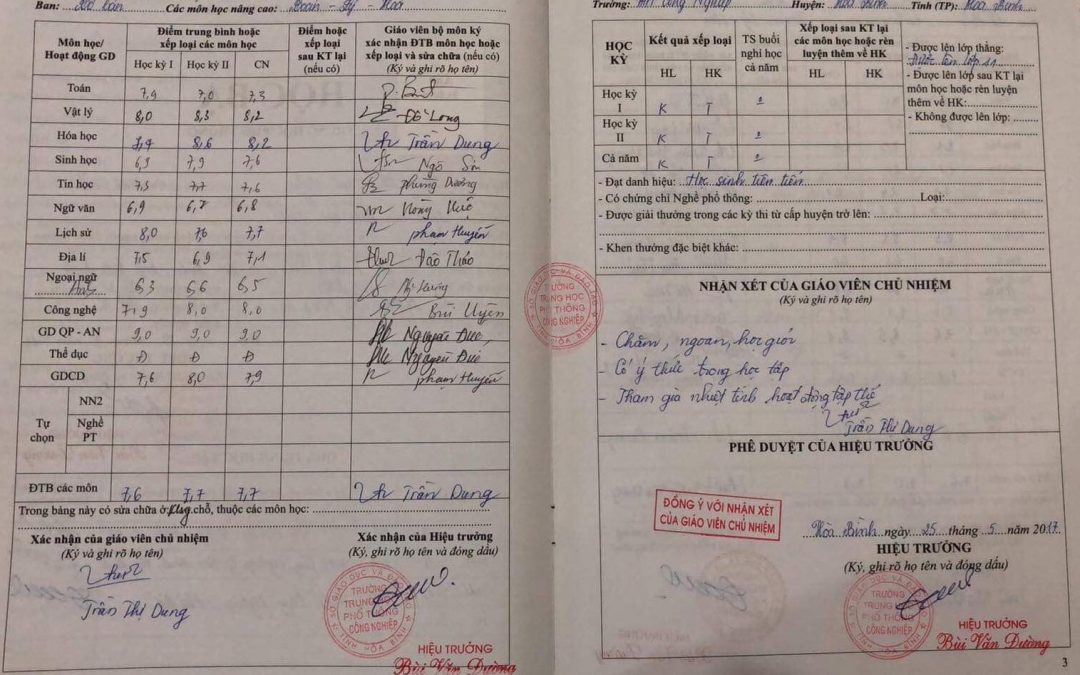 Ban: Các môn học nâng cao: Toán - Lý - Hoá
Môn học/ Hoạt động GD
Điểm trung bình hoặc xếp loại các môn học
Học kỳ I Học kỳ II CN
Điểm hoặc xếp loại sau KT lại (nếu có)
Giáo viên bộ môn ký xác nhận ĐTB môn học hoặc xếp loại và sửa chữa (nếu có)
(Ký và ghi rõ họ tên)
Toán 7,9 7,0 7,3
Vật lý 8,0 8,3 8,2 Đỗ Long
Hóa học 7,4 8,6 8,2 Trần Dung
Sinh học 6,9 7,9 7,6 Ngô
Tin học 7,3 7,7 7,6 Phùng Dương
Ngữ văn 6,9 6,7 6,8
Lịch sử 8,0 7,6 7,7 Phạm Huyền
Địa lí 7,5 6,9 7,1 Đào Thảo
Ngoại ngữ 6,3 6,6 6,5
Anh
Công nghệ 7,9 8,0 8,0 Bùi Uyên
GD QP - AN 9,0 9,0 9,0 Nguyễn Đức
Thể dục Đ Đ Đ Nguyễn Đức
GDCD 7,6 8,0 7,9 Phạm Huyền
Tự chọn
NN2
Nghề PT
ĐTB các môn 7,6 7,7 7,7 Trần Dung
Trong bảng này có sửa chữa ở: chỗ, thuộc các môn học:
Xác nhận của giáo viên chủ nhiệm
(Ký và ghi rõ họ tên)
Trần Thị Dung
Xác nhận của Hiệu trưởng
(Ký, ghi rõ họ tên và đóng dấu)
SỞ GIÁO DỤC VÀ ĐÀO TẠO
TRƯỜNG
TRUNG HỌC
PHỔ THÔNG
CÔNG NGHIỆP
TỈNH HÒA BÌNH
HIỆU TRƯỞNG
Bùi Văn Đường
Trường: THPT Công Nghiệp Huyện: Hoà Bình Tỉnh (TP): Hoà Bình
HỌC KỲ
Kết quả xếp loại
HL HK
TS buổi nghỉ học cả năm
Xếp loại sau KT lại các môn học hoặc rèn luyện thêm về HK
HL HK
Học kỳ I K T
Học kỳ II K T
Cả năm K T
- Được lên lớp thẳng:
Được lên lớp 11
- Được lên lớp sau KT lại môn học hoặc rèn luyện thêm về HK:
- Không được lên lớp:
- Đạt danh hiệu: Học sinh tiên tiến
- Có chứng chỉ Nghề phổ thông: Loại:
- Được giải thưởng trong các kỳ thi từ cấp huyện trở lên:
- Khen thưởng đặc biệt khác:
SỞ GIÁO DỤC VÀ ĐÀO TẠO
TRƯỜNG
TRUNG HỌC
PHỔ THÔNG
CÔNG NGHIỆP
TỈNH HÒA BÌNH
NHẬN XÉT CỦA GIÁO VIÊN CHỦ NHIỆM
(Ký và ghi rõ họ tên)
- Chăm, ngoan, học giỏi
- Có ý thức trong học tập
- Tham gia nhiệt tình hoạt động tập thể
Trần Thị Dung
PHÊ DUYỆT CỦA HIỆU TRƯỞNG
ĐỒNG Ý VỚI NHẬN XÉT
CỦA GIÁO VIÊN CHỦ NHIỆM
Hòa Bình, ngày 25 tháng 5 năm 2017
HIỆU TRƯỞNG
(Ký, ghi rõ họ tên và đóng dấu)
SỞ GIÁO DỤC VÀ ĐÀO TẠO
TRƯỜNG
TRUNG HỌC
PHỔ THÔNG
CÔNG NGHIỆP
TỈNH HÒA BÌNH
HIỆU TRƯỞNG
Bùi Văn Đường
3